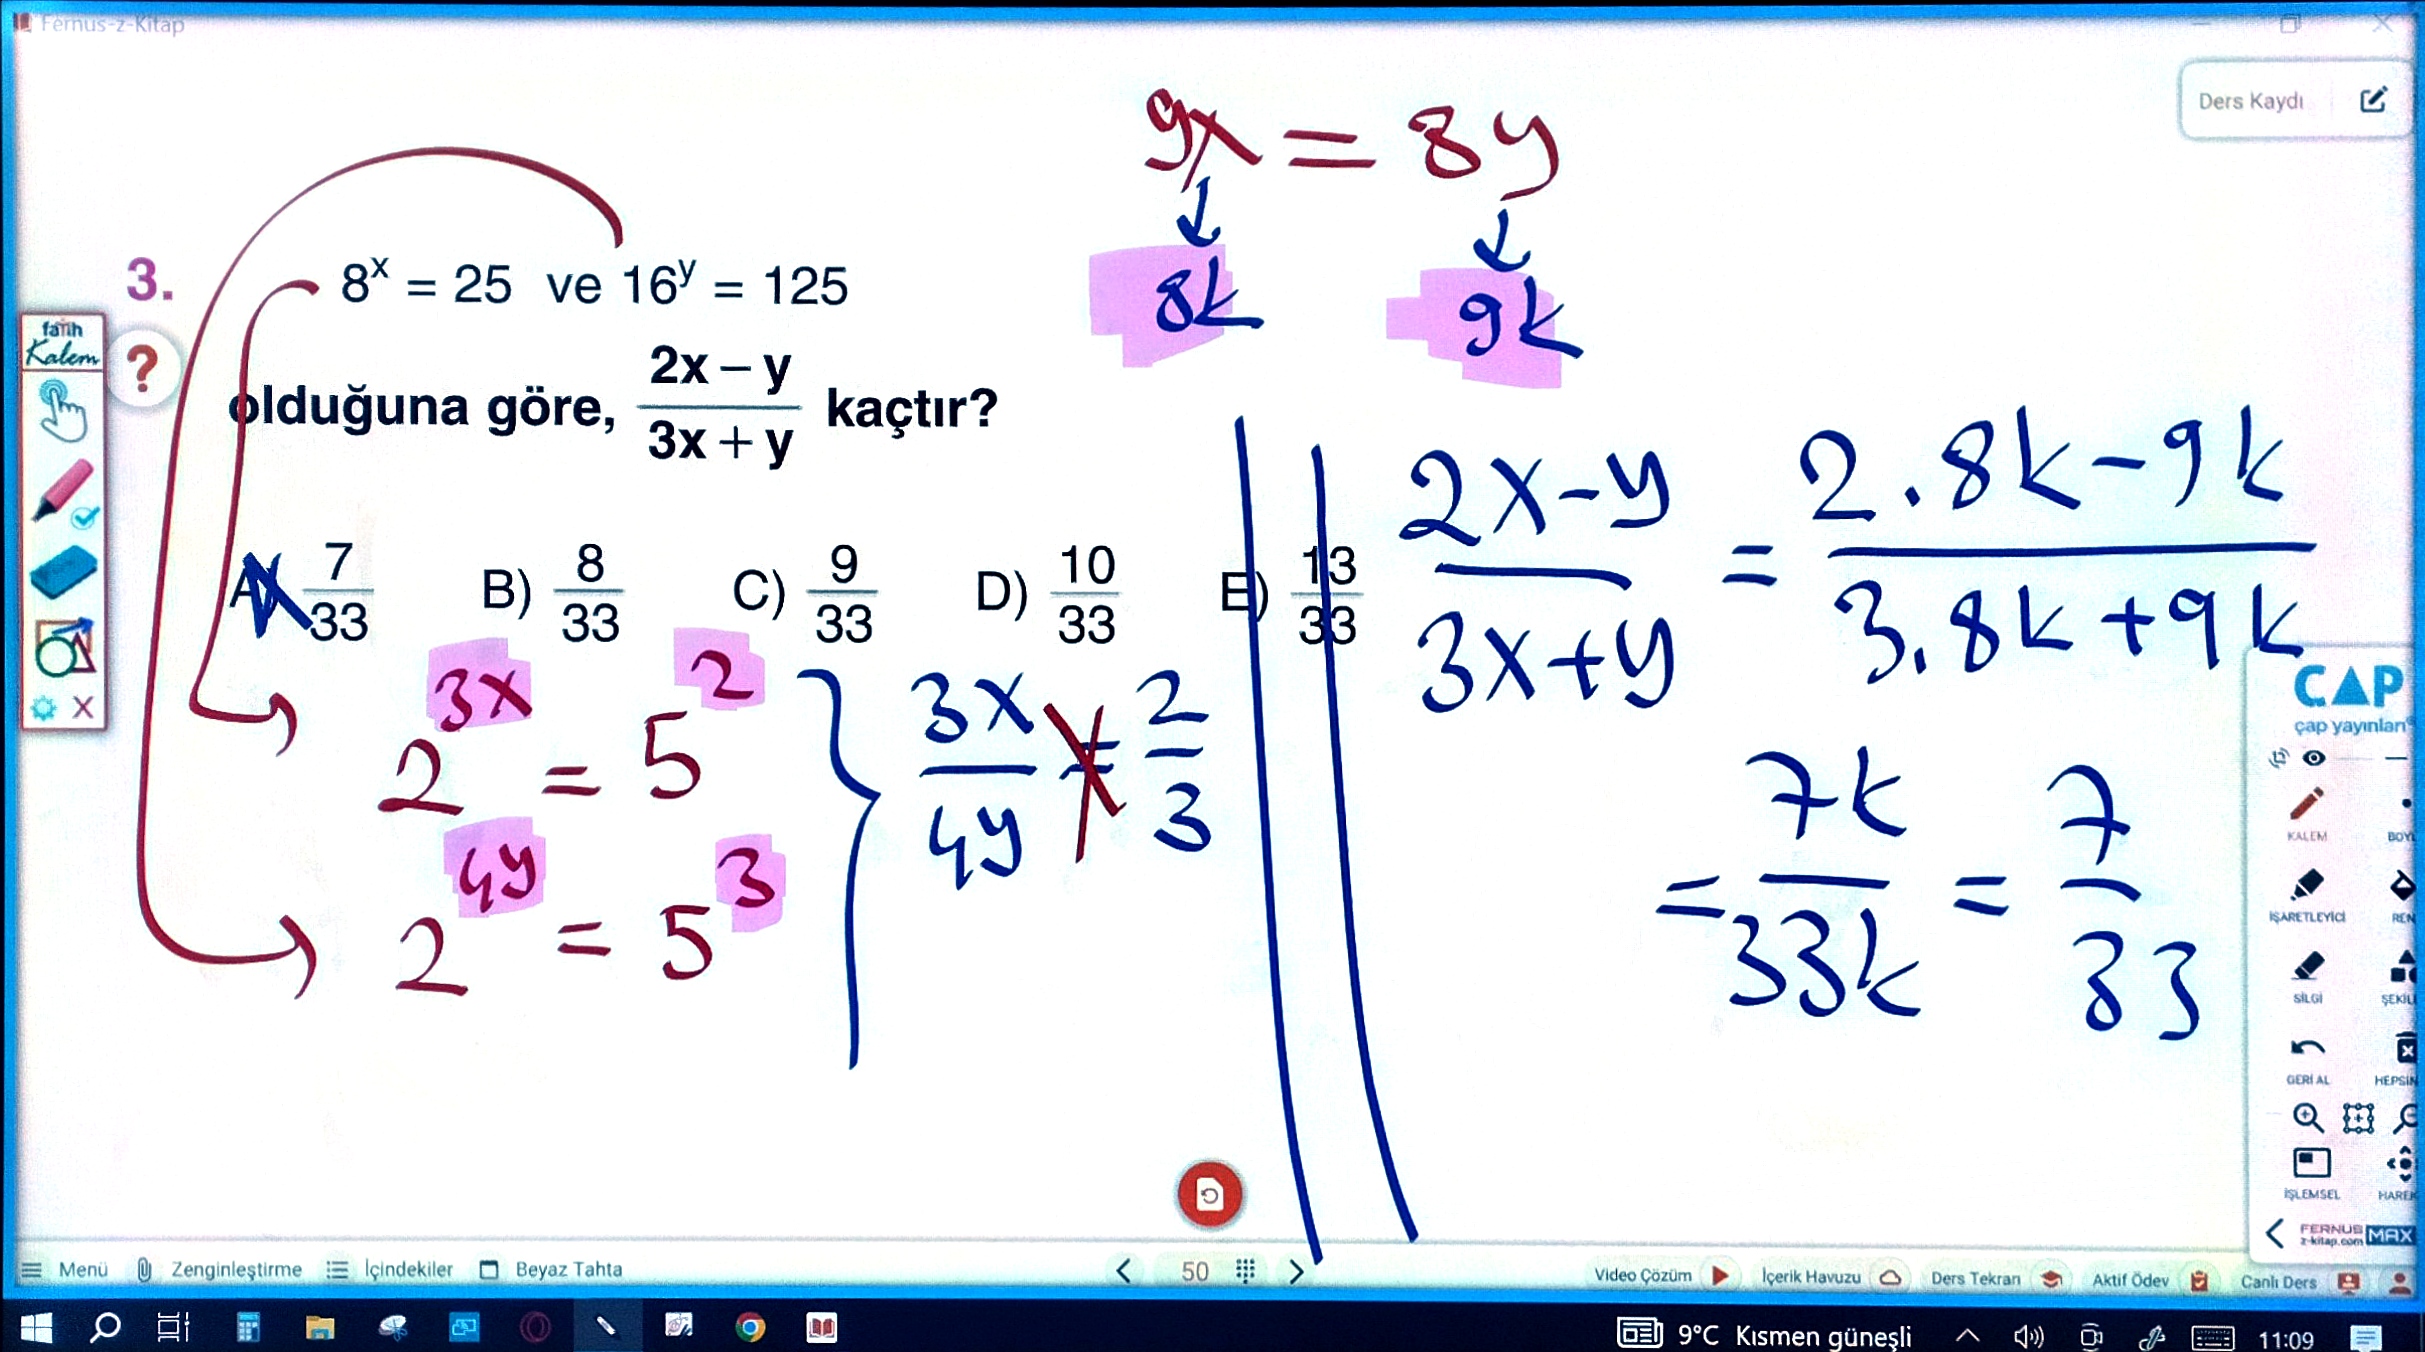 Fernus-z-Kitap
Ders Kaydı
9x = 8y
8k 9k
3. 8ˣ = 25 ve 16ʸ = 125
?
olduğuna göre, (2x – y)/(3x + y) kaçtır?
A) 7/33 B) 8/33 C) 9/33 D) 10/33 E) 13/33
fatih
Kalem
2^(3x) = 5^2
2^(4y) = 5^3
3x/4y = 2/3
(2x-y)/(3x+y) = (2.8k-9k)/(3.8k+9k)
= 7k/33k = 7/33
ÇAP
çap yayınları
KALEM
İŞARETLEYİCİ
SİLGİ
GERİ AL
İŞLEMSEL
FERNUS
z-kitap.com MAX
Menü Zenginleştirme İçindekiler Beyaz Tahta 50 Video Çözüm İçerik Havuzu Ders Tekrarı Aktif Ödev Canlı Ders
9°C Kısmen güneşli 11:09